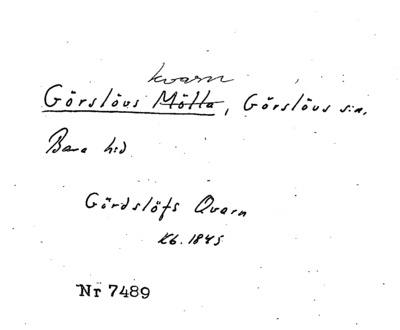 kvarn
Görslövs Mölla, Görslövs s:n,
Bara h:d
Gördslöfs Qvarn
Kb. 1845
Nr 7489